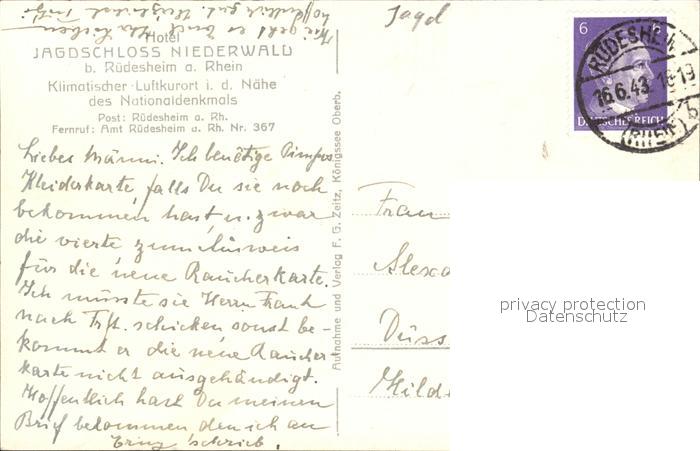 Hotel
JAGDSCHLOSS NIEDERWALD
b. Rüdesheim a. Rhein
Klimatischer Luftkurort i. d. Nähe
des Nationaldenkmals
Post: Rüdesheim a. Rh.
Fernruf: Amt Rüdesheim a. Rh. Nr. 367
Liebes Männi. Ich benötige Pimpfis
Kleiderkarte, falls Du sie noch
bekommen hast, u. zwar
die vierte zum Ausweis
für die neue Raucherkarte.
Ich müsste sie Herrn Frank
nach Frft. schicken sonst be-
kommt er die neue Raucher-
karte nicht ausgehändigt.
Hoffentlich hast Du meinen
Brief bekommen, den ich an
schrieb.
Wie geht es Euch
hoffentlich gut. Herzlichst
Aufnahme und Verlag F. G. Zeitz, Königssee Oberb.
Jagd
6 6
DEUTSCHES REICH
RÜDESHEIM
16.6.43.18-19
b
(RHEIN)
Frau
Alexa
Düss
Hild
privacy protection
Datenschutz